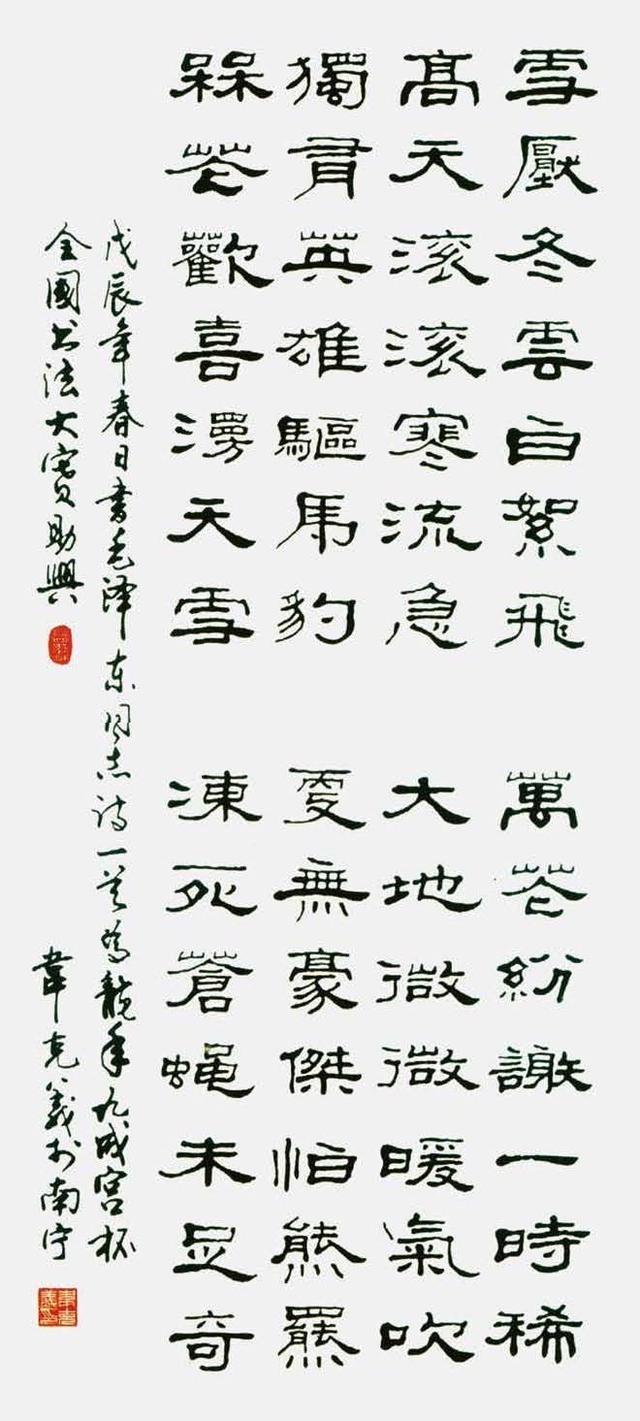 雪壓冬雲白絮飛 萬花紛謝一時稀
髙天滚滚寒流急 大地微微暖氣吹
獨有英雄驅虎豹 更無豪傑怕熊羆
槑花歡喜漫天雪 凍死蒼蝇未足奇
戊辰年春日書毛泽东同志诗一首为龍年九成宫杯
全國书法大賽助興 韋克義於南宁